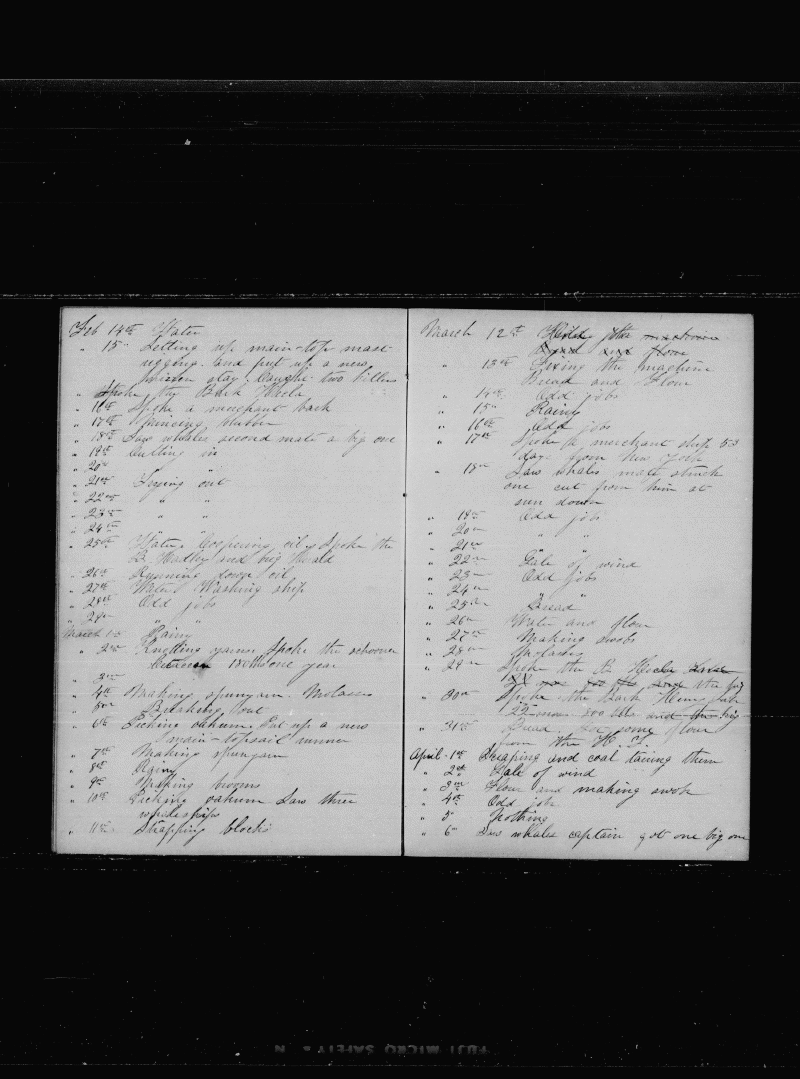 Feb 14th Water
" 15" Setting up main-top mast
rigging. and put up a new
mizzen stay. Caught two killers
" Spoke the Bark Hecla
" 16th Spoke a merchant bark
" 17th Mincing blubber
" 18th Saw whales second mate a big one
" 19th Cutting in
" 20th "
" 21st Trying out
" 22nd " "
" 23rd " "
" 24th " "
" 25th Water. Coopering oil. Spoke the
B. and big
" 26th Running down oil
" 27th Water. Washing ship
" 28th Odd jobs
" 29th "
March 1st Rainy
" 2nd Knotting yarns Spoke the schooner
one year
" 3rd
" 4th Making spunyarn. Molasses
" 5th boat
" 6th Picking oakum. Put up a new
main-topsail runner
" 7th Making spunyarn
" 8th Rainy
" 9th Making brooms
" 10th Picking oakum Saw three
whaleships
" 11th Strapping blocks
March 12th the machine
Bread and flour
" 13th Fixing the machine
Bread and Flour
" 14th Odd jobs
" 15" Rainy
" 16th Odd jobs
" 17th Spoke a merchant ship 53
days from New York
" 18" Saw whales mate struck
one cut from him at
sun down
" 19th Odd jobs
" 20"
" 21" " "
" 22" Gale of wind
" 23" Odd jobs
" 24"
" 25th " Bread
" 26" Water and flour
" 27th Making swobs
" 28" Molasses
" 29" Spoke the B. Hecla
the
" 30th Spoke the Bark
22 mos. 200 bbls and the big
" 31st Bread. Got some flour
from the H. T.
April 1st Scraping and coal taring them
" 2nd Gale of wind
" 3rd Flour and making swob
" 4th Odd job
" 5" Nothing
" 6" Saw whales captain got one big one
FUJI MICRO SAFETY N